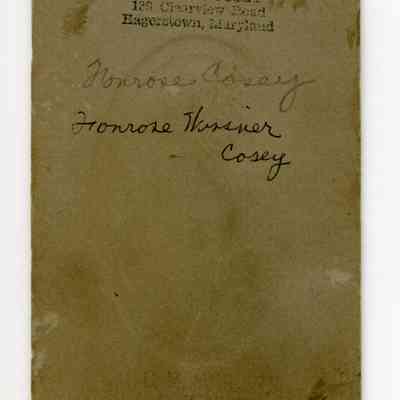 139 Clearview Road
Hagerstown, Maryland
Fonrose Cosey
Fonrose Wissner
Cosey